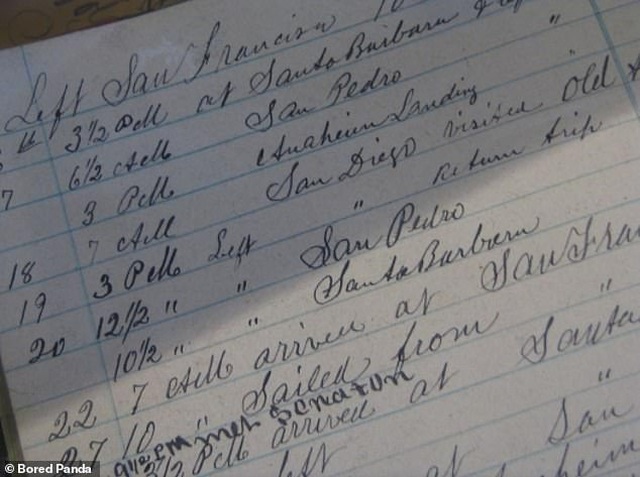 Left San Francisco 10
th 3 1/2 PM at Santa Barbara &
6 1/2 AM San Pedro "
7 3 PM Anaheim Landing "
7 AM San Diego visited Old
18 3 PM Left " Return trip
19 12 1/2 " " San Pedro
20 10 1/2 " " Santa Barbara
22 7 AM arrived at San Fran
27 10 " Sailed from "
9 1/2 PM met Senator
3 1/2 PM arrived at Santa
left "
at San
heim
Bored Panda